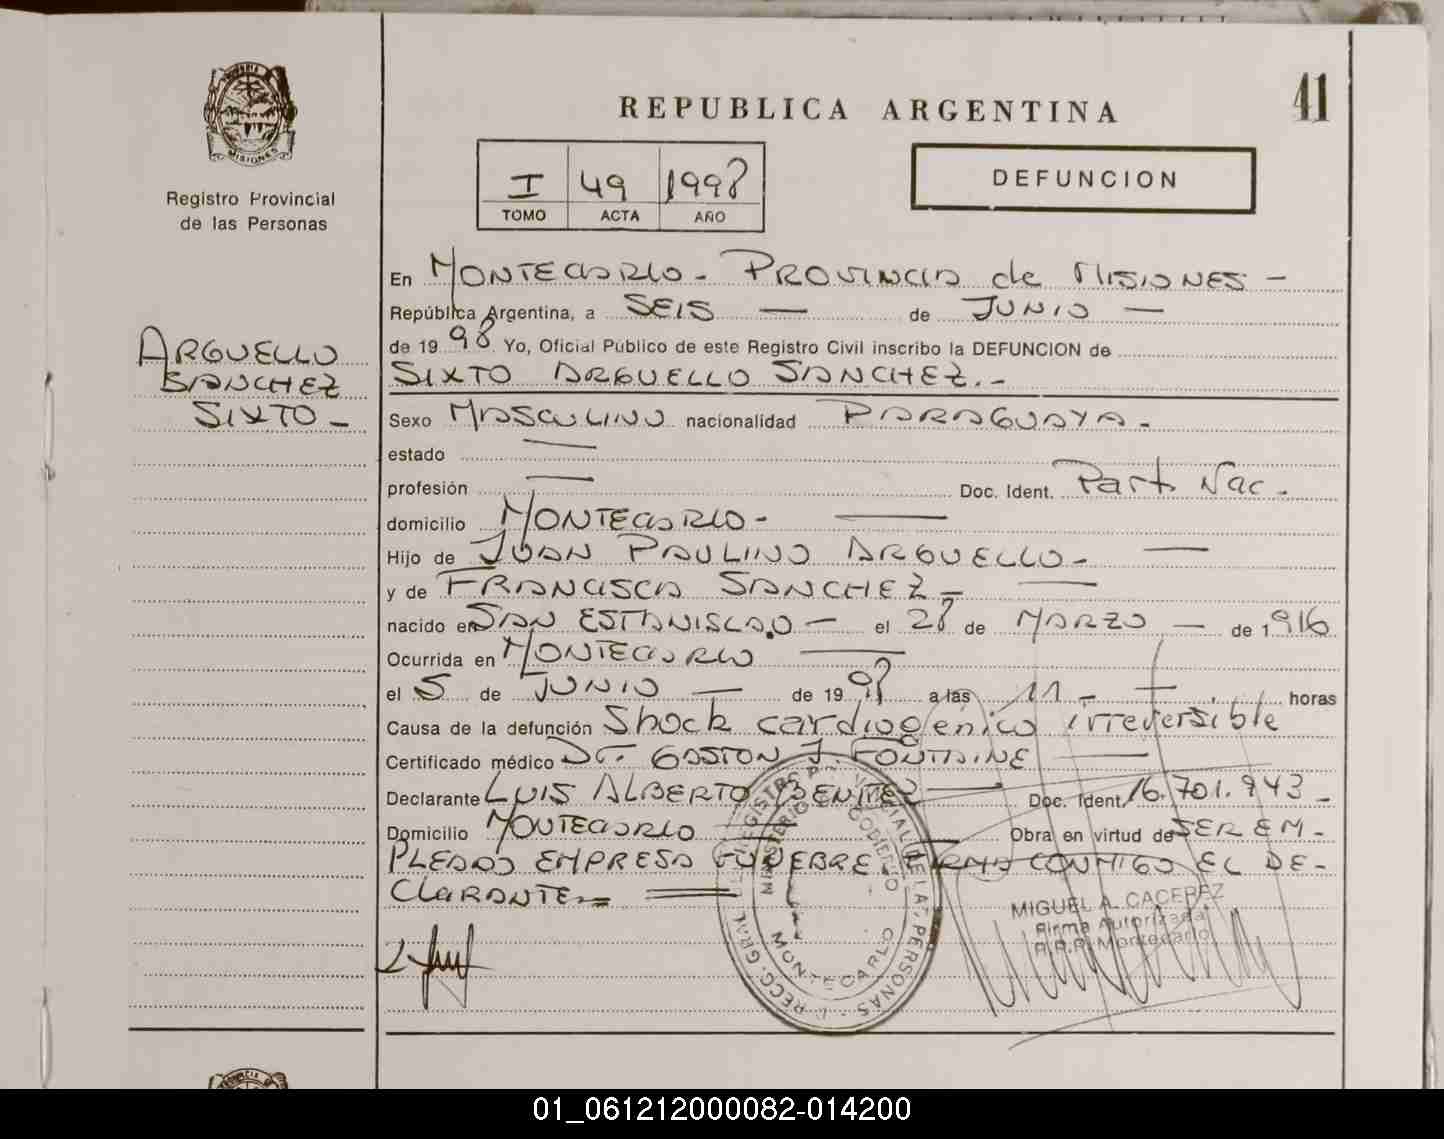 PROVINCIA DE
MISIONES
Registro Provincial
de las Personas
ARGUELLO
SANCHEZ
SIXTO -
41
REPUBLICA ARGENTINA
I 49 1998
TOMO ACTA AÑO
DEFUNCION
En MONTECARLO - PROVINCIA de MISIONES -
República Argentina, a SEIS — de JUNIO —
de 1998 Yo, Oficial Público de este Registro Civil inscribo la DEFUNCION de
SIXTO ARGUELLO SANCHEZ.-
Sexo MASCULINO nacionalidad PARAGUAYA.
estado —
profesión — Doc. Ident. Part. Nac.
domicilio MONTECARLO - —
Hijo de JUAN PAULINO ARGUELLO - —
y de FRANCISCA SANCHEZ - —
nacido en SAN ESTANISLAO — el 28 de MARZO — de 1916
Ocurrida en MONTECARLO —
el 5 de JUNIO — de 1998 a las 11 - — horas
Causa de la defunción Shock cardiogénico irreversible
Certificado médico Dr. GASTON J. FONTAINE —
Declarante LUIS ALBERTO BENITEZ — Doc. Ident. 16.701.943 -
Domicilio MONTECARLO — Obra en virtud de SER EM-
PLEADO EMPRESA FUNEBRE. FIRMA CONMIGO EL DE-
CLARANTE =
MIGUEL A. CACEREZ
Firma Autorizada
R.P.P. Montecarlo
MINISTERIO DE GOBIERNO
MONTECARLO
01_061212000082-014200